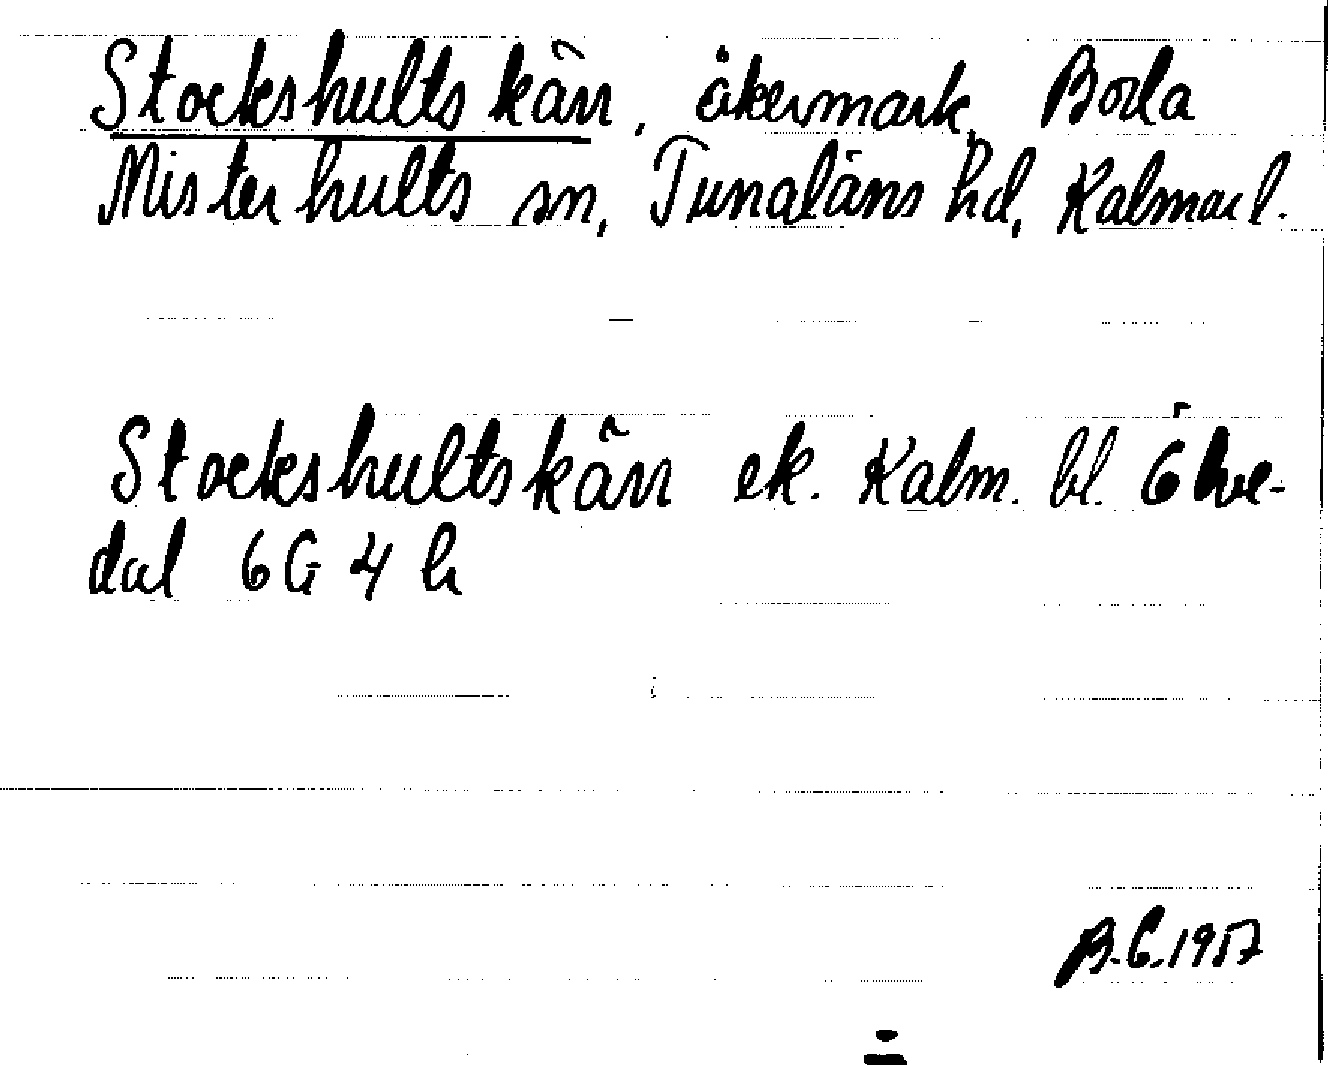 Stockshults kärr, åkermark, Boda
Misterhults sn, Tunaläns hd, Kalmar l.
Stockshultskärr ek. Kalm. bl.
dal 6G 4 h
B.E. 1957